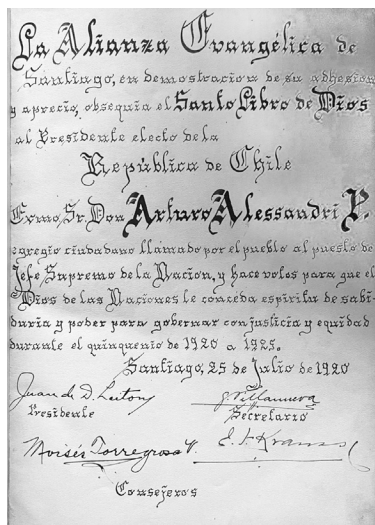 La Alianza Evangélica de
Santiago, en demostracion de su adhesion
y aprecio, obsequia el Santo Libro de Dios
al Presidente electo de la
República de Chile
Exmo, Sr. Don Arturo Alessandri P.
egregio ciudadano llamado por el pueblo al puesto de
Jefe Supremo de la Nacion, y hace votos para que el
Dios de las Naciones le conceda espiritu de sabi-
duria y poder para gobernar con justicia y equidad
durante el quinquenio de 1920 a 1925.
Santiago, 25 de Julio de 1920
Juan de D. Leiton
Presidente
J. Villanueva
Secretario
Moisés Torregrosa V.
E. F. Krauss
Consejeros